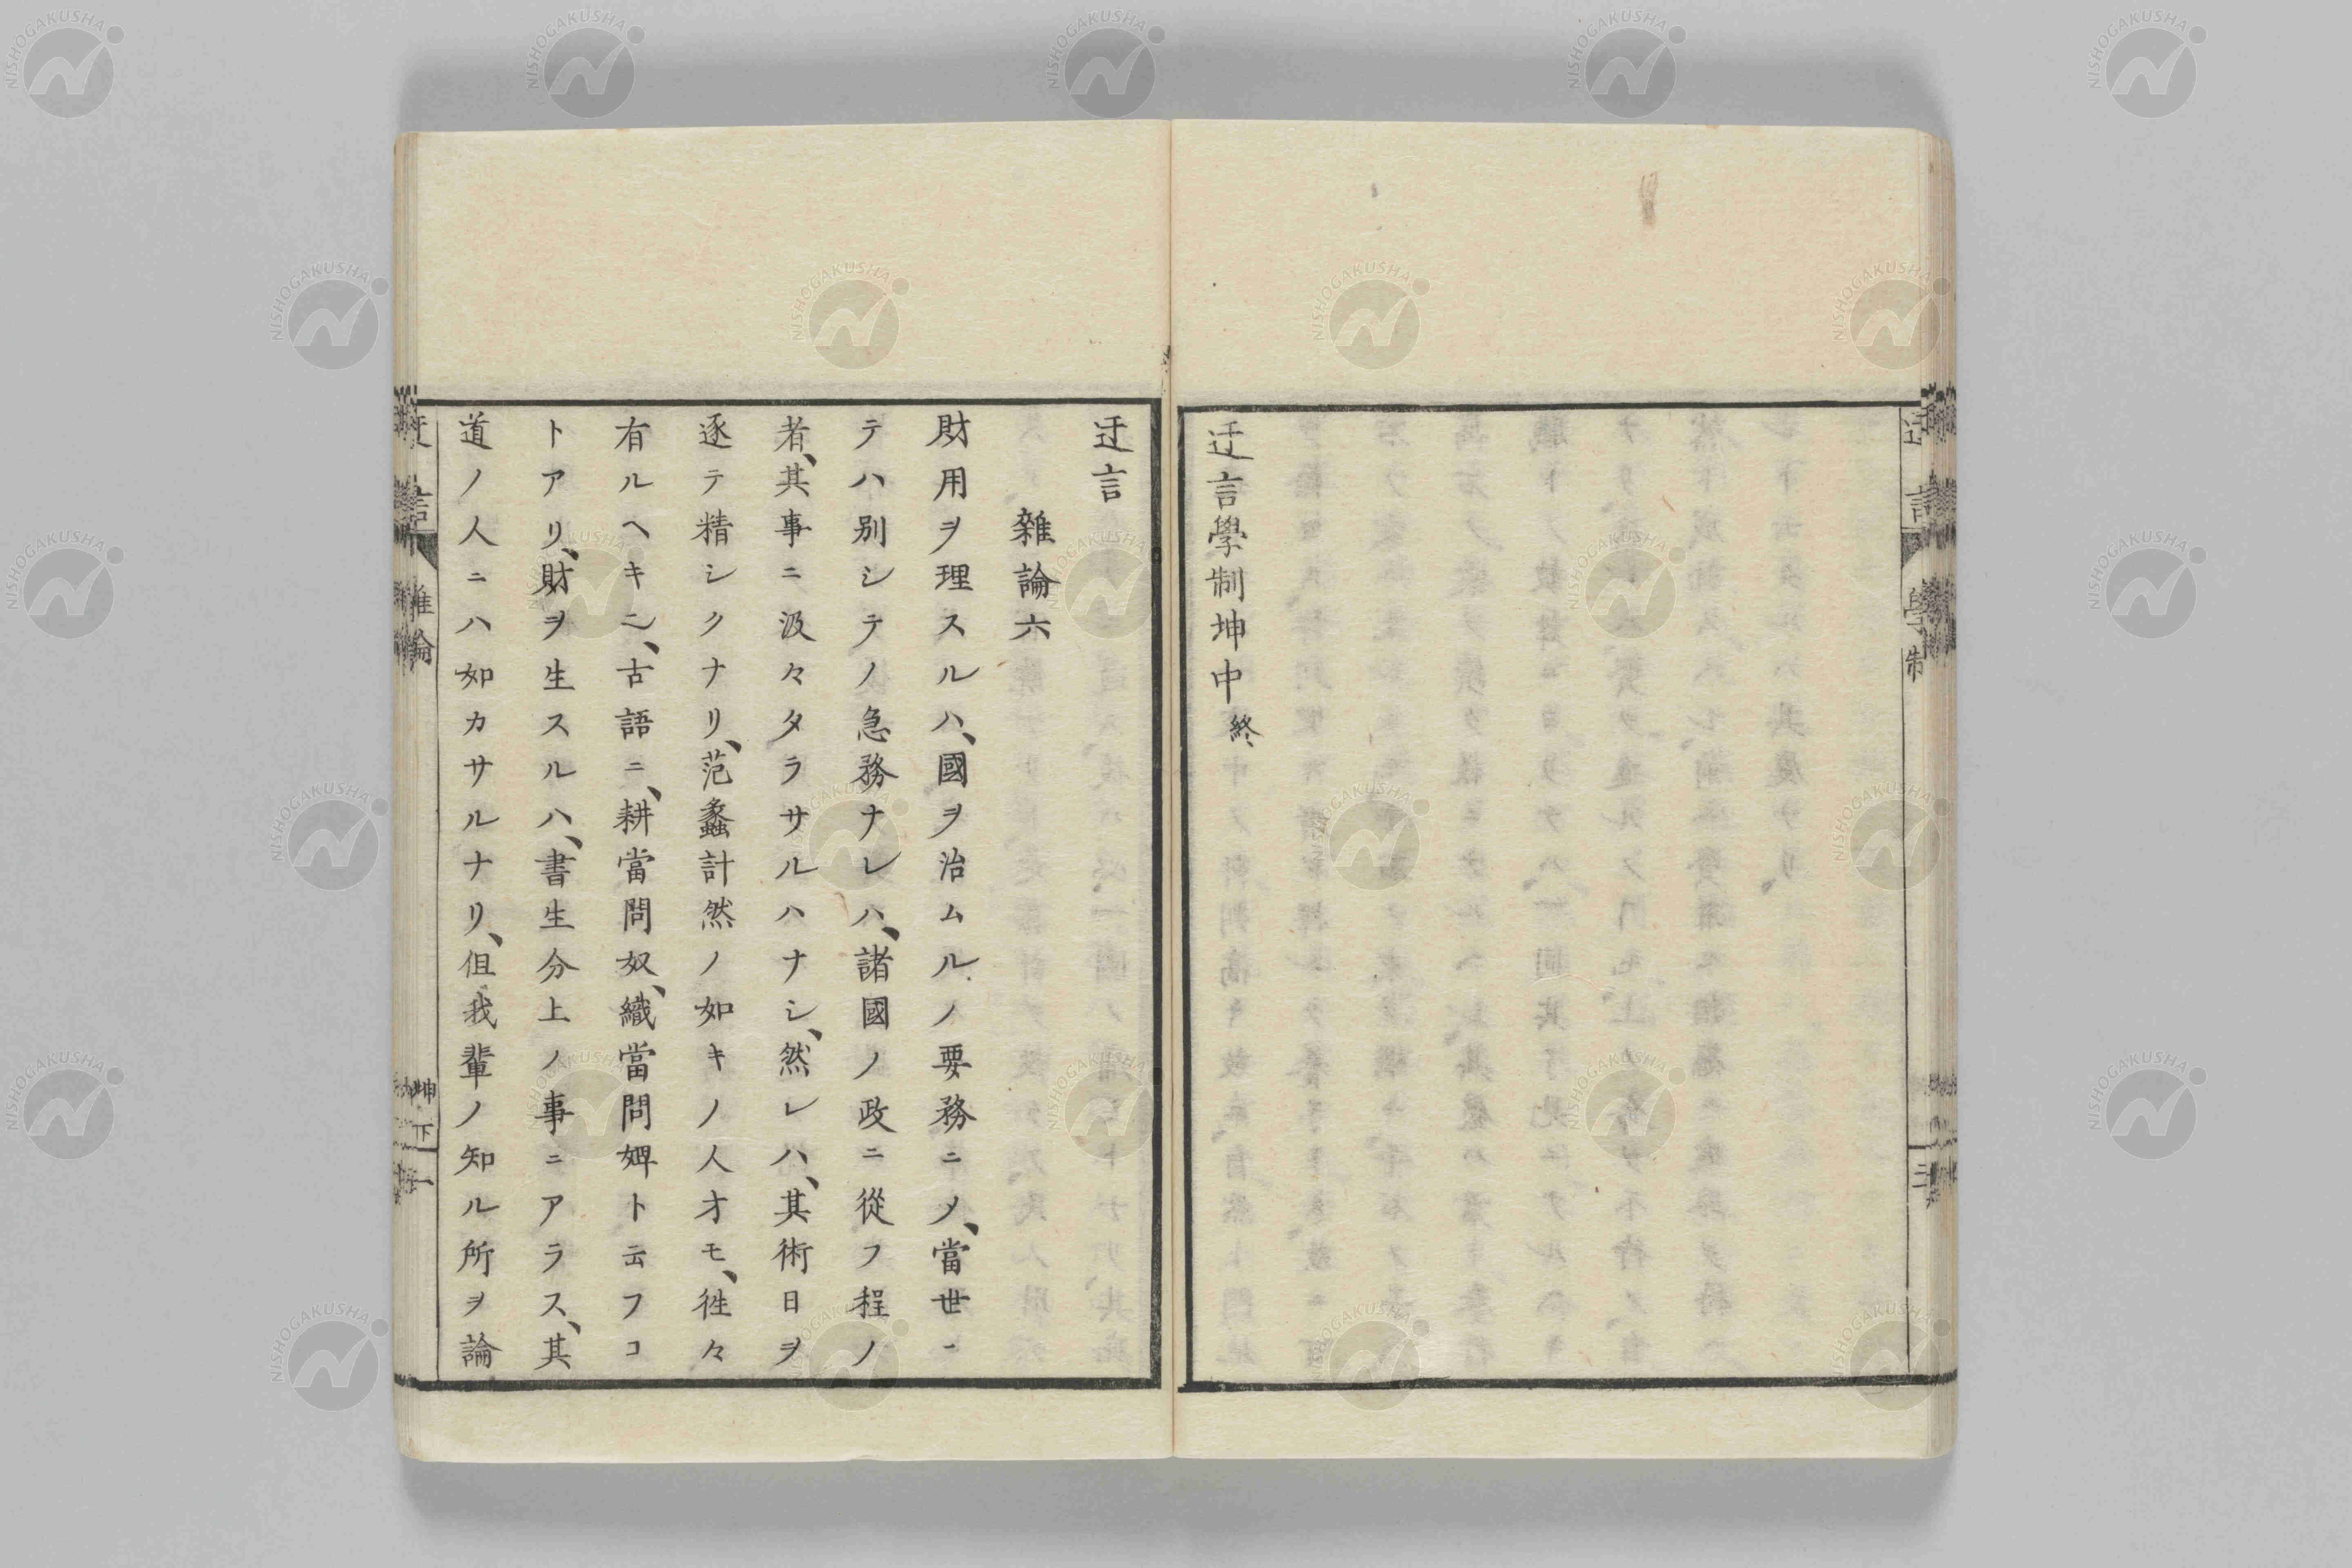 迂言學制坤中終
迂言
雜論六
財用ヲ理スルハ、國ヲ治ムルノ要務ニメ、當世ニ
テハ別シテノ急務ナレハ、諸國ノ政ニ從フ程ノ
者、其事ニ汲々タラサルハナシ、然レハ、其術日ヲ
逐テ精シクナリ、范蠡計然ノ如キノ人才モ、徃々
有ルヘキニ、古語ニ、耕當問奴、織當問婢ト云フコ
トアリ、財ヲ生スルハ、書生分上ノ事ニアラス、其
道ノ人ニハ如カサルナリ、但我輩ノ知ル所ヲ論
迂言 雜論 坤下 一
NISHOGAKUSHA